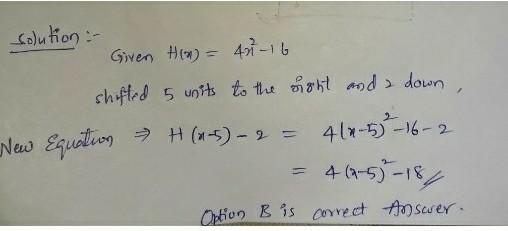 Solution :-
Given H(x) = 4x²-16
shifted 5 units to the right and 2 down,
New Equation ⇒ H(x-5) - 2 = 4(x-5)²-16-2
= 4(x-5)²-18
Option B is correct Answer.